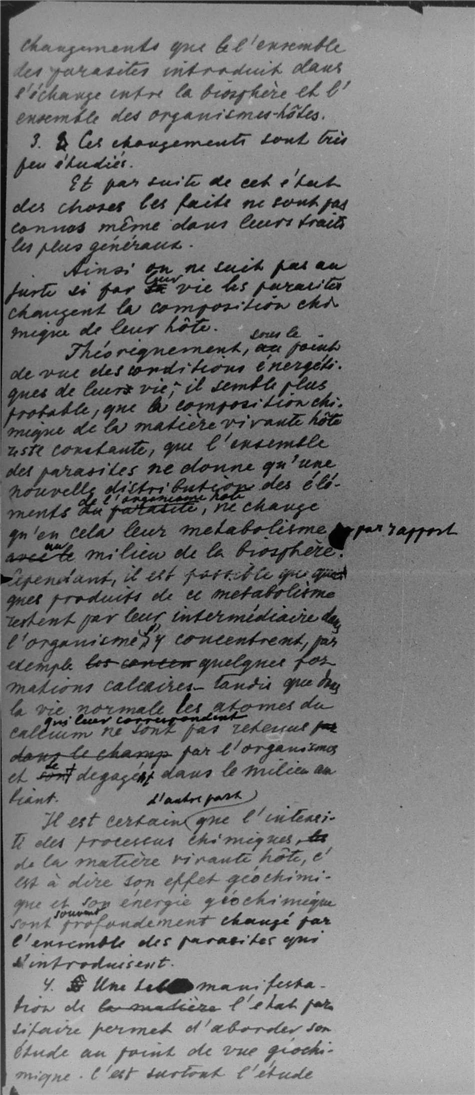 changements que l'ensemble
des parasites introduit dans
l'échange entre la biosphère et l'
ensemble des organismes-hôtes.
3. Ces changements sont très
peu étudiés.
Et par suite de cet état
des choses les faits ne sont pas
connus même dans leurs traits
les plus généraux.
Ainsi on ne sait pas au
juste si par leur vie les parasites
changent la composition chi
mique de leur hôte.
Théoriquement, sous le point
de vue des conditions énergéti-
ques de leur vie, il semble plus
probable, que la composition chi-
mique de la matière vivante hôte
reste constante, que l'ensemble
des parasites ne donne qu'une
nouvelle distribution des élé-
ments de l'organisme hôte, ne change
qu'en cela leur metabolisme par rapport
au milieu de la biosphère.
Cependant, il est possible que quel
ques produits de ce metabolisme
restent par leur intermédiaire dans
l'organisme, s'y concentrent, par
exemple quelques for
mations calcaires – tandis que dans
la vie normale les atomes du
calcium qui leur correspondent ne sont pas retenus
par l'organisme
et se degagent dans le milieu am
biant.
Il est certain d'autre part que l'intensi-
té des processus chimiques
de la matière vivante hôte, c'
est à dire son effet géochimi-
que et son énergie géochimique
sont souvent profondement changé par
l'ensemble des parasites qui
s'introduisent.
4. Une manifesta-
tion de l'etat para
sitaire permet d'aborder son
étude au point de vue géochi-
mique. C'est surtout l'étude